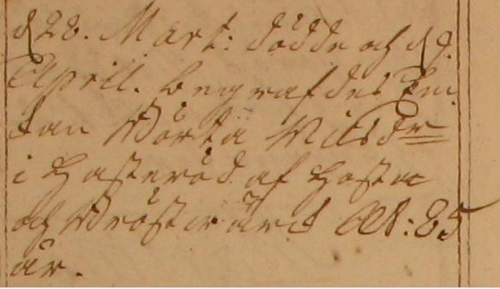 d 28. Mart: dödde och d 9.
April. begrafdes En¬
kan Börta Nilsdr
i Hasteröd af Hosta
och Bröstwärck Æt: 85
år.